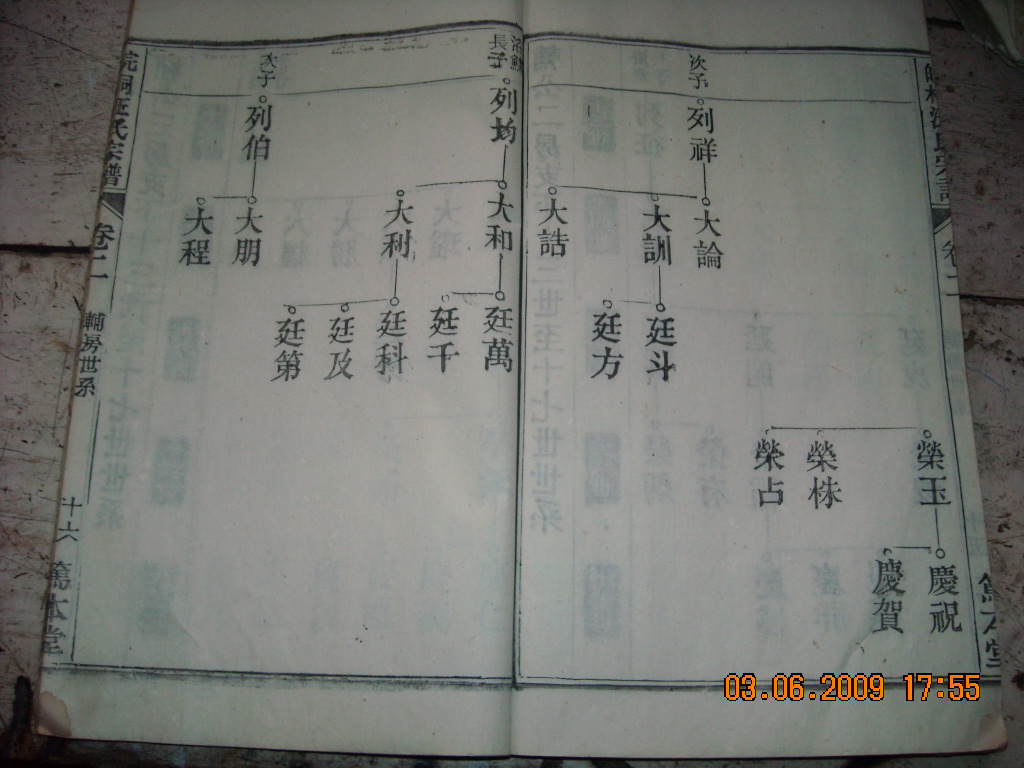 慶祝
榮玉
慶賀
榮株
榮占
次子
列祥
大論
大訓
廷斗
廷方
大誥
長子
列均
大和
廷萬
廷千
大利
廷科
廷及
廷第
次子
列伯
大朋
大程
氏宗譜
卷二
輔房世系
十六
篤本堂
03.06.2009 17:55